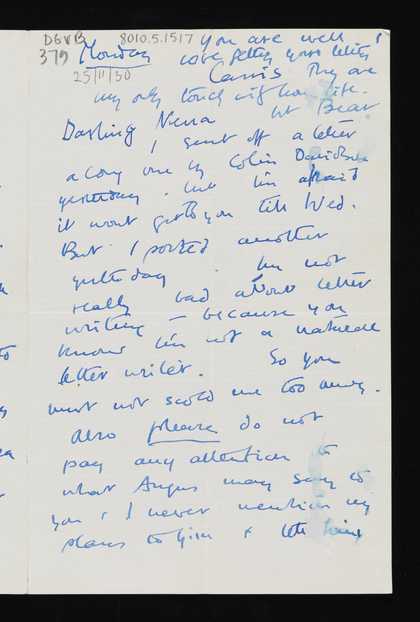 DGVB 8010.5.1517 you are well &
379 Monday love getting your letters
25/11/30 Carris They are
my only touch with our life.
Darling Nena
I sent off a letter
a long one by Colin Davidson
yesterday. but I'm afraid
it wont get to you till Wed.
But I posted another
yesterday. Im not
really bad about letter
writing — because you
know I'm not a natural
letter writer. So you
must not scold me too away.
Also please do not
pay any attention to
what Angus may say to
you. I never mention my
plans to him & let him